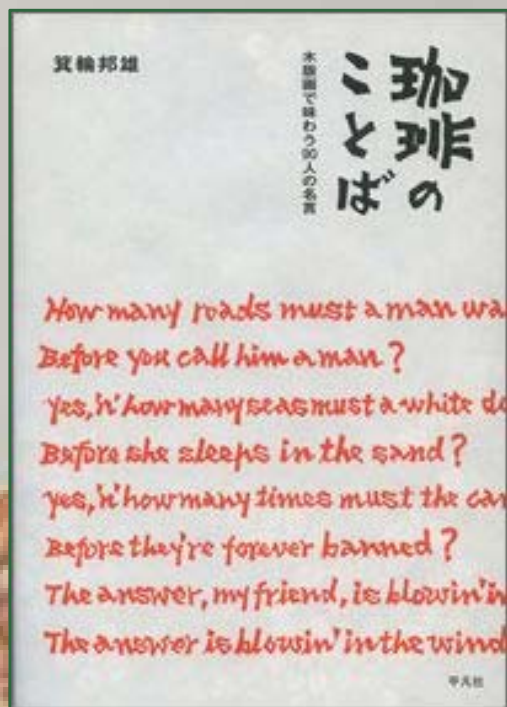 箕輪邦雄
珈琲の
ことば
木版画で味わう90人の名言
How many roads must a man wa
Before you call him a man?
yes, 'n' how many seas must a white do
Before she sleeps in the sand?
yes, 'n' how many times must the can
Before they're forever banned?
The answer, my friend, is blowin' in
The answer is blowin' in the wind
平凡社